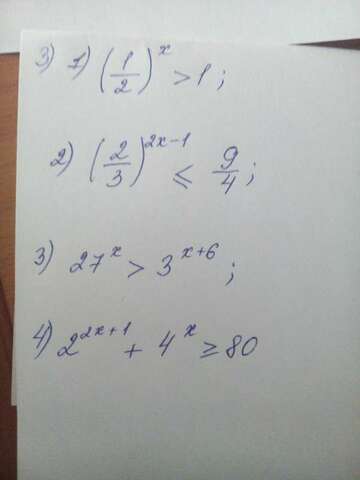 3) 1) (1/2)^x > 1;
2) (2/3)^{2x-1} ≤ 9/4;
3) 27^x > 3^{x+6};
4) 2^{2x+1} + 4^x ≥ 80